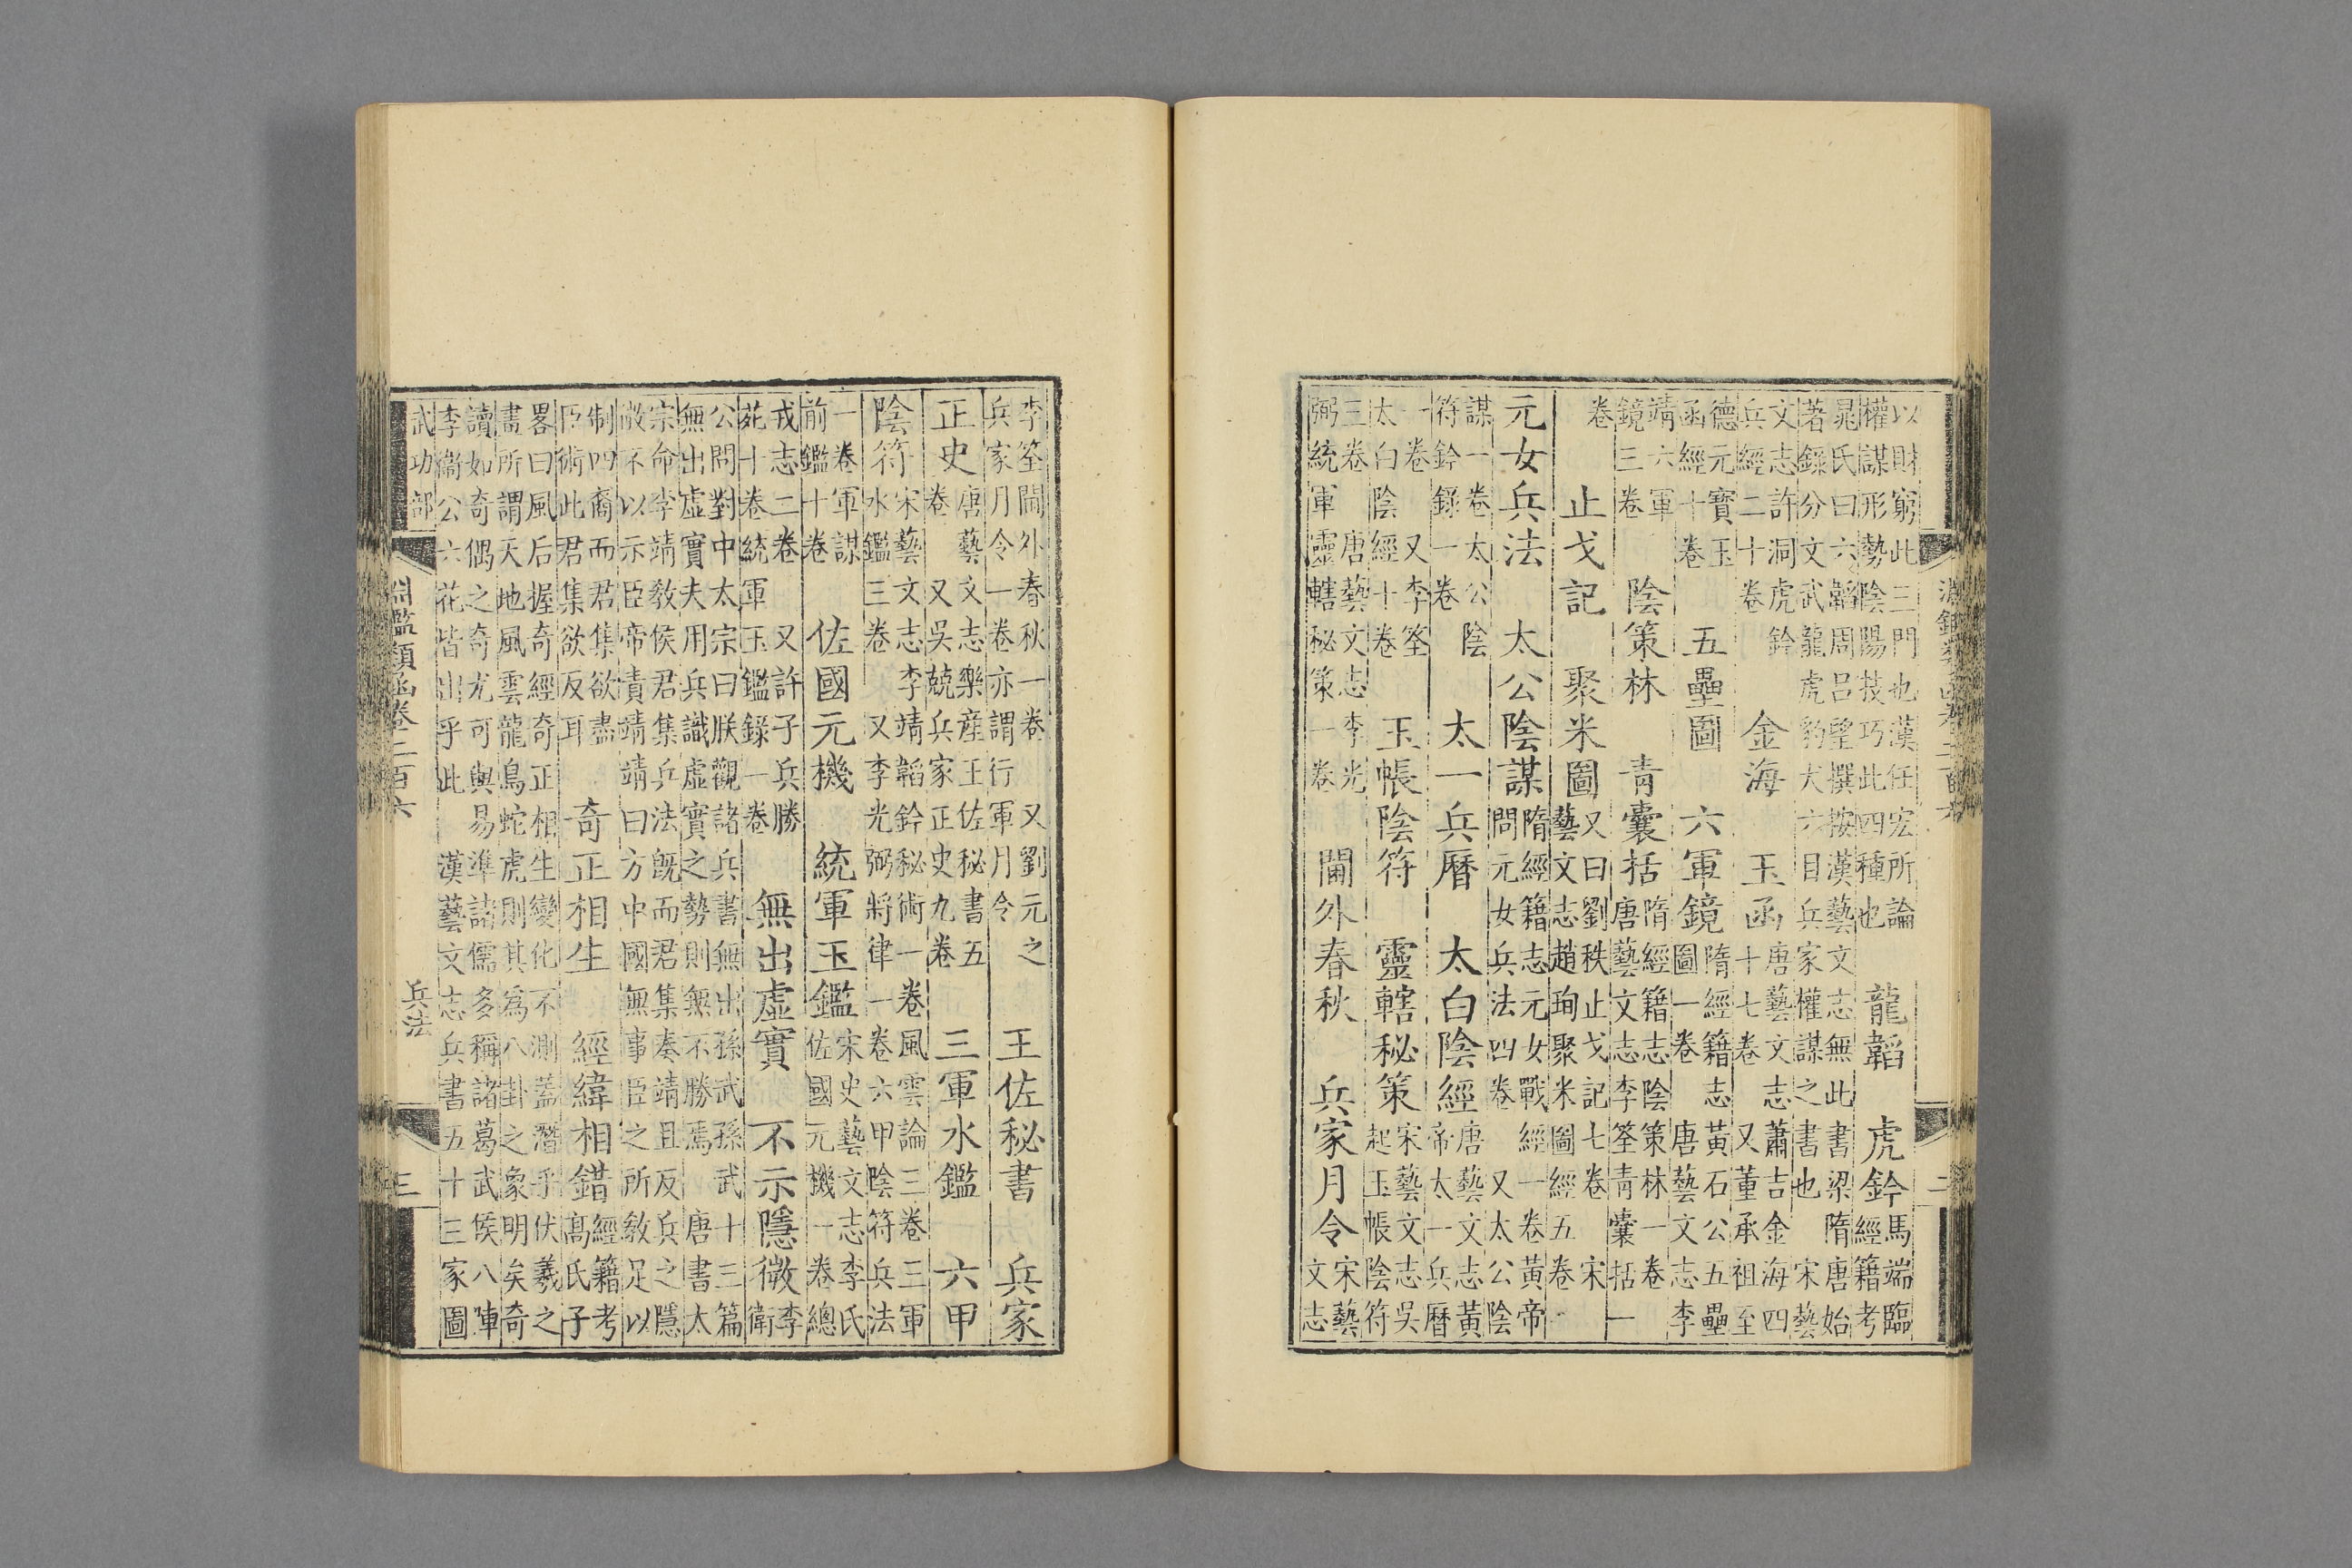 以財窮此三門也漢任宏所論
權謀形勢陰陽技巧此四種也
龍韜　虎鈐
馬端臨
經籍考
晁氏曰六韜周呂望撰按漢藝文志無此書梁隋唐始
著錄分文武龍虎豹犬六目兵家權謀之書也　宋藝
文志許洞虎鈐
兵經二十卷
金海　玉函
唐藝文志蕭吉金海四
十七卷　又董承祖至
德元寶玉
函經十卷
五壘圖　六軍鏡
隋經籍志黃石公五壘
圖一卷　唐藝文志李
靖六軍
鏡三卷
陰策林　青囊括
隋經籍志陰策林一卷
唐藝文志李筌青囊括一
卷
止戈記　聚米圖
又曰劉秩止戈記七卷　宋
藝文志趙珣聚米圖經五卷
元女兵法　太公陰謀
隋經籍志元女戰經一卷黃帝
問元女兵法四卷　又太公陰
謀一卷太公陰
符鈐錄一卷
太一兵曆　太白陰經
唐藝文志黃
帝太一兵曆
一卷　又李筌
太白陰經十卷
玉帳陰符　靈轄秘策
宋藝文志吳
起玉帳陰符
三卷　唐藝文志李光
弼統軍靈轄秘策一卷
閫外春秋　兵家月令
宋藝
文志
李筌閫外春秋一卷　又劉元之
兵家月令一卷亦謂行軍月令
王佐秘書　兵家
正史
唐藝文志樂產王佐秘書五
卷　又吳兢兵家正史九卷
三軍水鑑　六甲
陰符
宋藝文志李靖韜鈐秘術一卷風雲論三卷三軍
水鑑三卷　又李光弼將律一卷六甲陰符兵法
一卷軍謀
前鑑十卷
佐國元機　統軍玉鑑
宋史藝文志李氏
佐國元機一卷總
戎志二卷　又許子兵勝
苑十卷統軍玉鑑錄一卷
無出虛實　不示隱微
李
衛
公問對中太宗曰朕觀諸兵書無出孫武孫武十三篇
無出虛實夫用兵識虛實之勢則無不勝焉　唐書太
宗命李靖教侯君集兵法既而君集奏靖且反兵之隱
微不以示臣帝責靖靖曰方中國無事臣之所教足以
制四裔而君集欲盡
臣術此君集欲反耳
奇正相生　經緯相錯
經籍考
高氏子
畧曰風后握奇經奇正相生變化不測蓋潛乎伏羲之
畫所謂天地風雲龍鳥蛇虎則其為八卦之象明矣奇
讀如奇偶之奇尤可與易準諸儒多稱諸葛武侯八陣
李衛公六花皆出乎此　漢藝文志兵書五十三家圖
武功部　淵鑑類函卷二百六　兵法　三